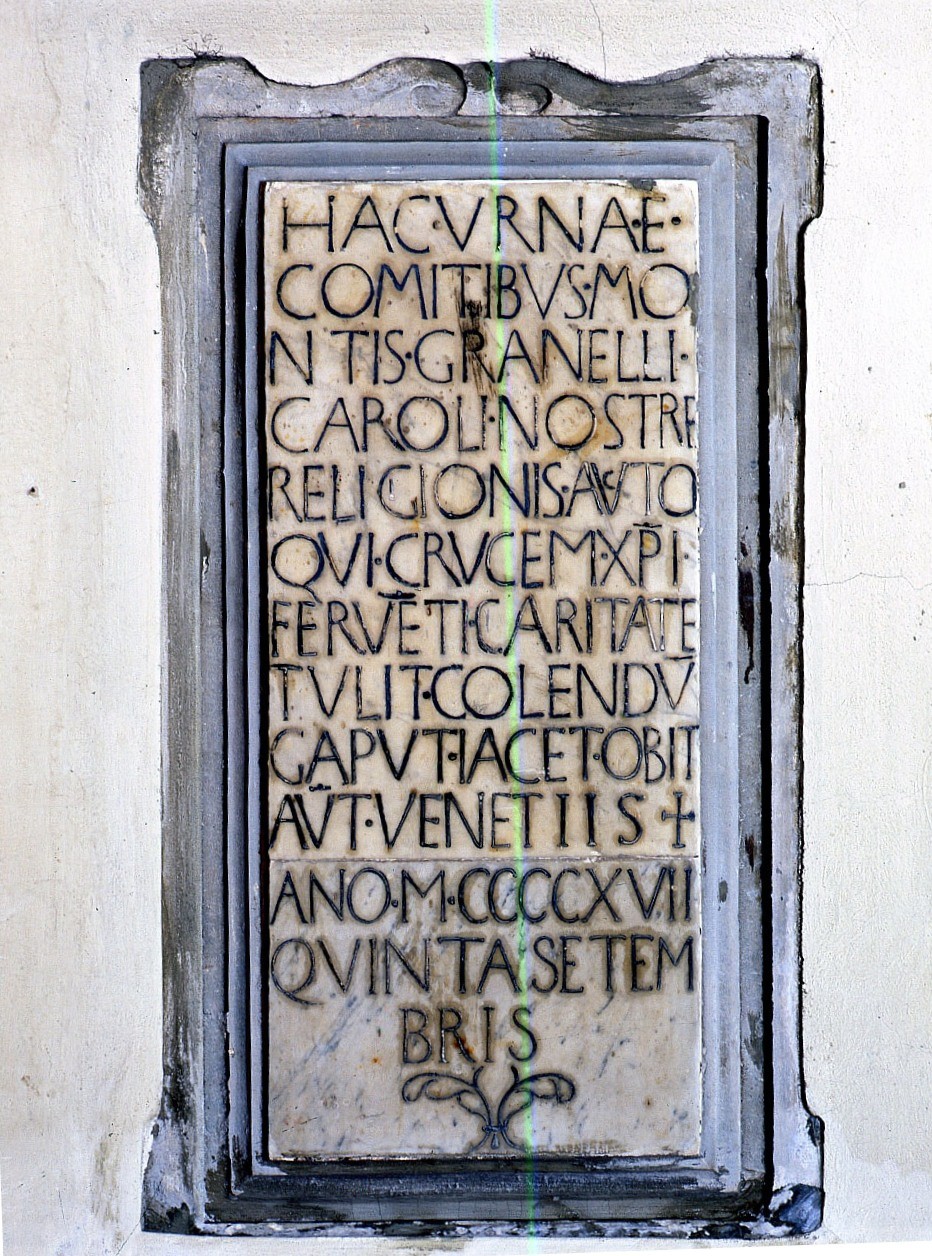 HAC·VRNA·E·
COMITIBVS·MO
NTIS·GRANELLI·
CAROLI·NOSTRE
RELIGIONIS·AVTO
QVI·CRVCEM·XP̄I·
FERVĒTI·CARITATE
TVLIT·COLENDV̄
CAPVT·IACET·OBIT
AV̄T·VENETIIS +
ANO·M·CCCCXVII
QVINTA SETEM
BRIS